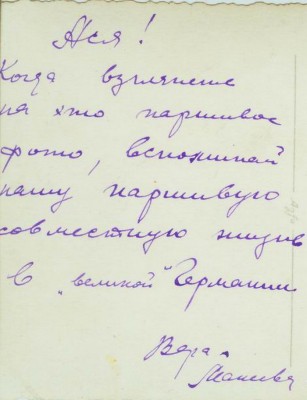 Ася!
Когда взглянешь
на это паршивое
фото, вспоминай
нашу паршивую
совместную жизнь
в "великой" Германии
Вера